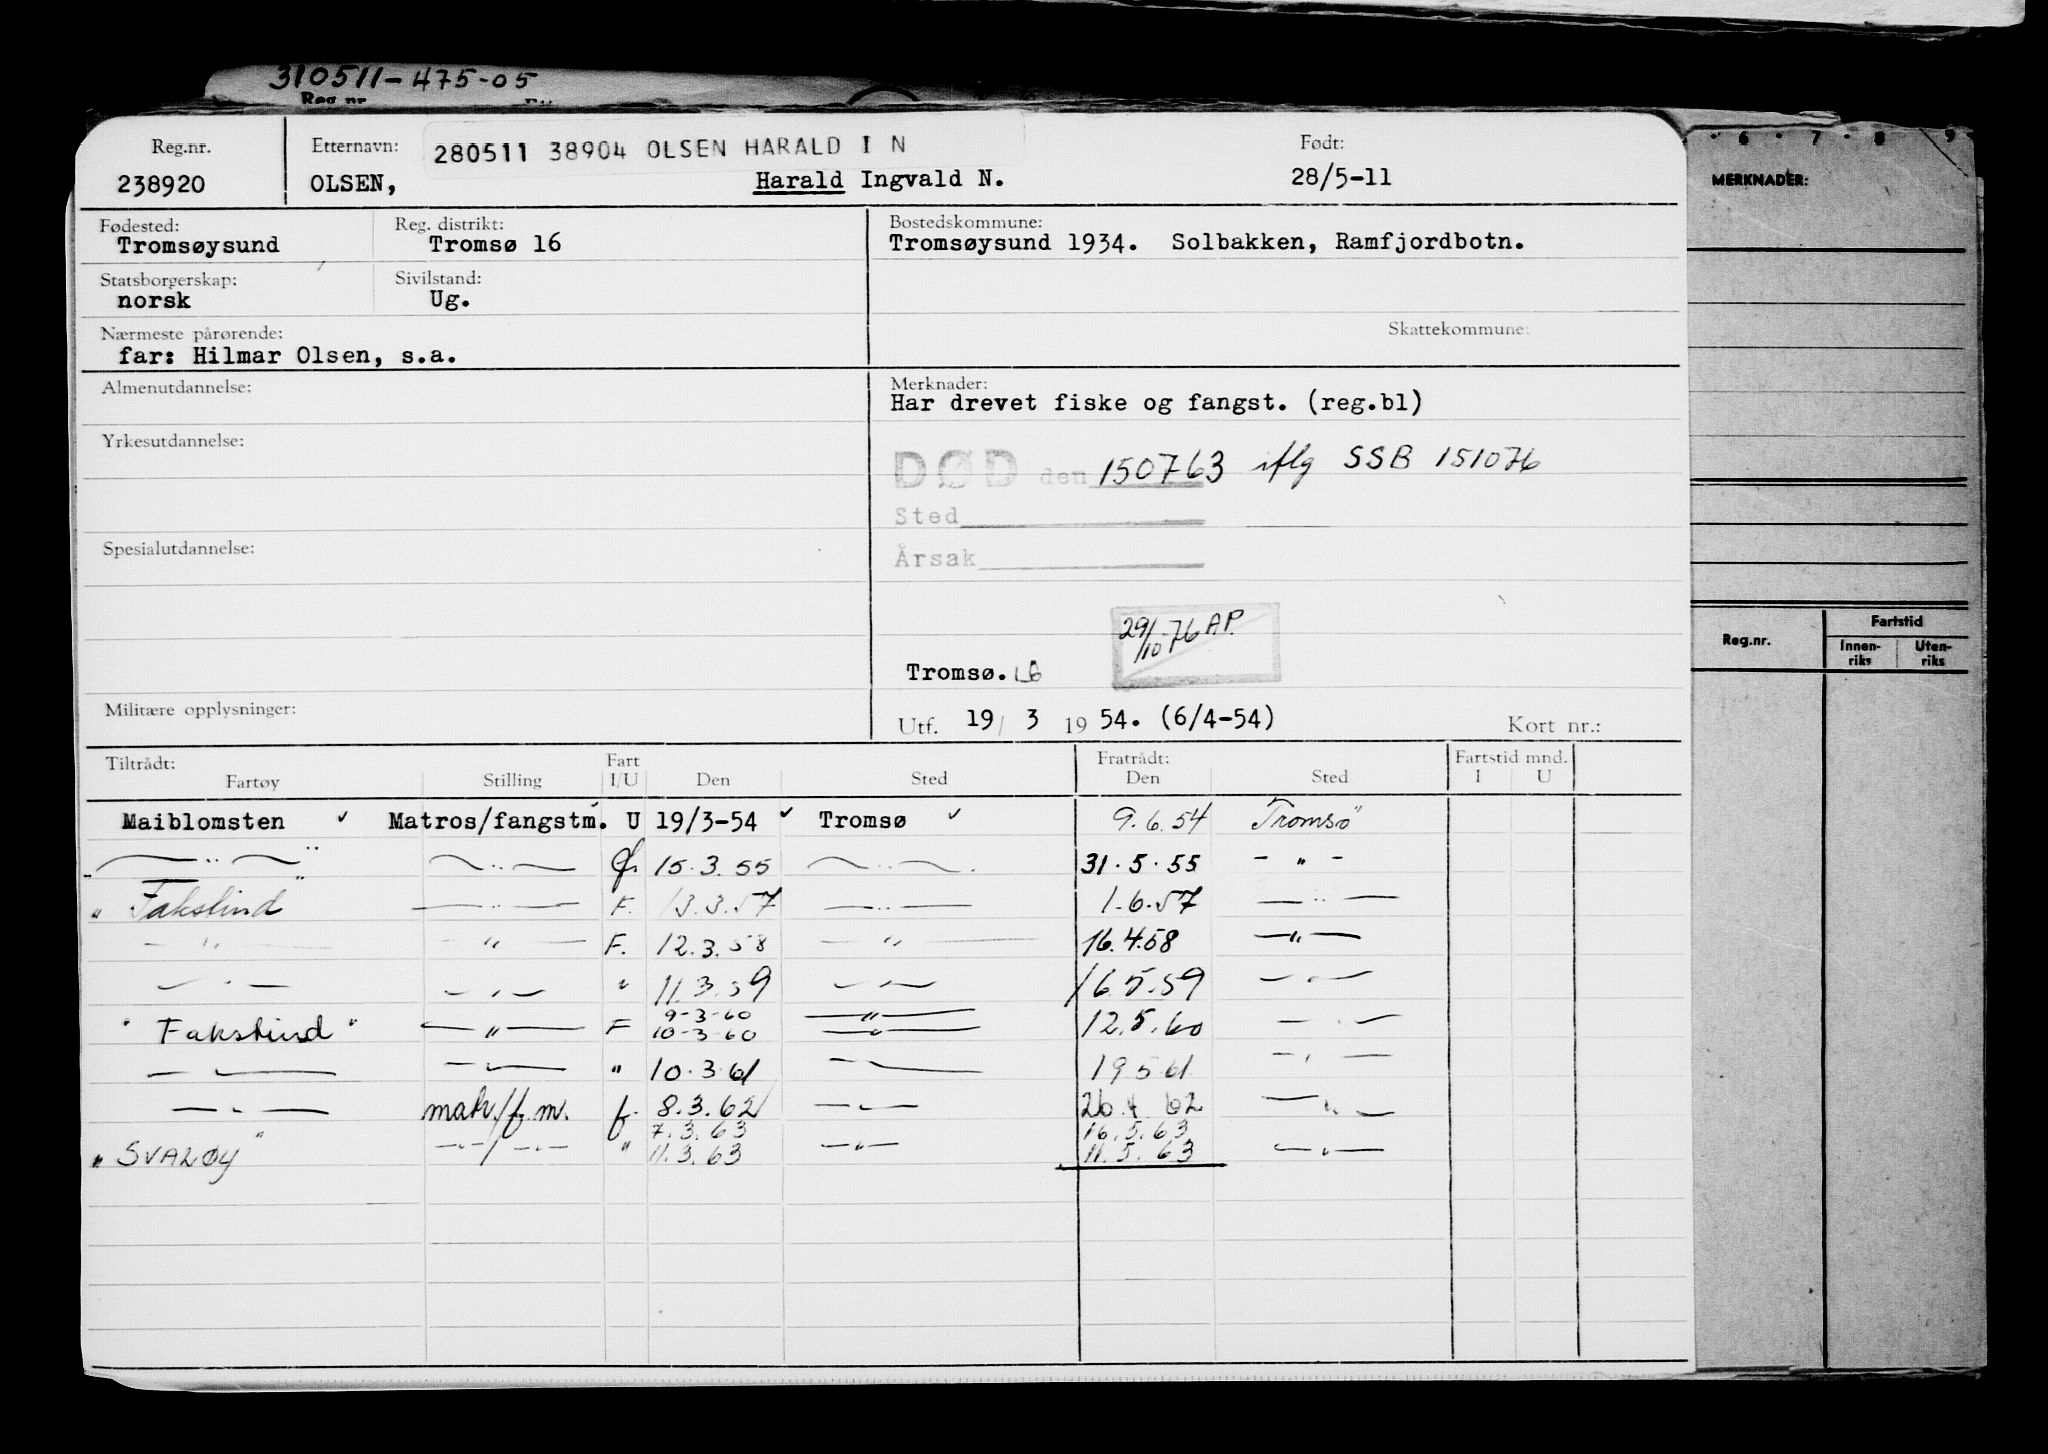 310511-475-05
Reg.nr.
6 · 7 · 8 9
MERKNADER:
Reg.nr. Etternavn: 280511 38904 OLSEN HARALD I N Født:
238920 OLSEN, Harald Ingvald N. 28/5-11
Fødested: Reg. distrikt: Bostedskommune:
Tromsøysund Tromsø 16 Tromsøysund 1934. Solbakken, Ramfjordbotn.
Statsborgerskap: Sivilstand:
norsk Ug.
Nærmeste pårørende: Skattekommune:
far: Hilmar Olsen, s.a.
Almenutdannelse: Merknader:
Har drevet fiske og fangst. (reg.bl)
Yrkesutdannelse:
DØD den 150763 iflg SSB 151076
Sted
Spesialutdannelse: Årsak
29/10-76 A.P.
Tromsø.
Militære opplysninger: Utf. 19/ 3 19 54. (6/4-54) Kort nr.:
Reg.nr. Fartstid
Innen-riks Uten-riks
Tiltrådt: Fart Fratrådt: Fartstid mnd.
Fartøy Stilling I/U Den Sted Den Sted I U
Maiblomsten ✓ Matros/fangstm. U 19/3-54 ✓ Tromsø ✓ 9.6.54 Tromsø
— " — — " — 15.3.55 — " — 31.5.55 — " —
" Fakstind " — " — F. 13.3.57 — " — 1.6.57 — " —
— " — — " — F. 12.3.58 — " — 16.4.58 — " —
— " — — " — " 11.3.59 — " — 16.5.59 — " —
9-3-60 — " —
" Fakstind " — " — F 10-3-60 — " — 12.5.60 — " —
— " — — " — " 10.3.61 — " — 19.5.61 — " —
— " — matr./f.m. f. 8.3.62 — " — 26.4.62 — " —
7.3.63 16.5.63
" SVALØY " — " — / — " — " 11.3.63 — " — 11.5.63 — " —